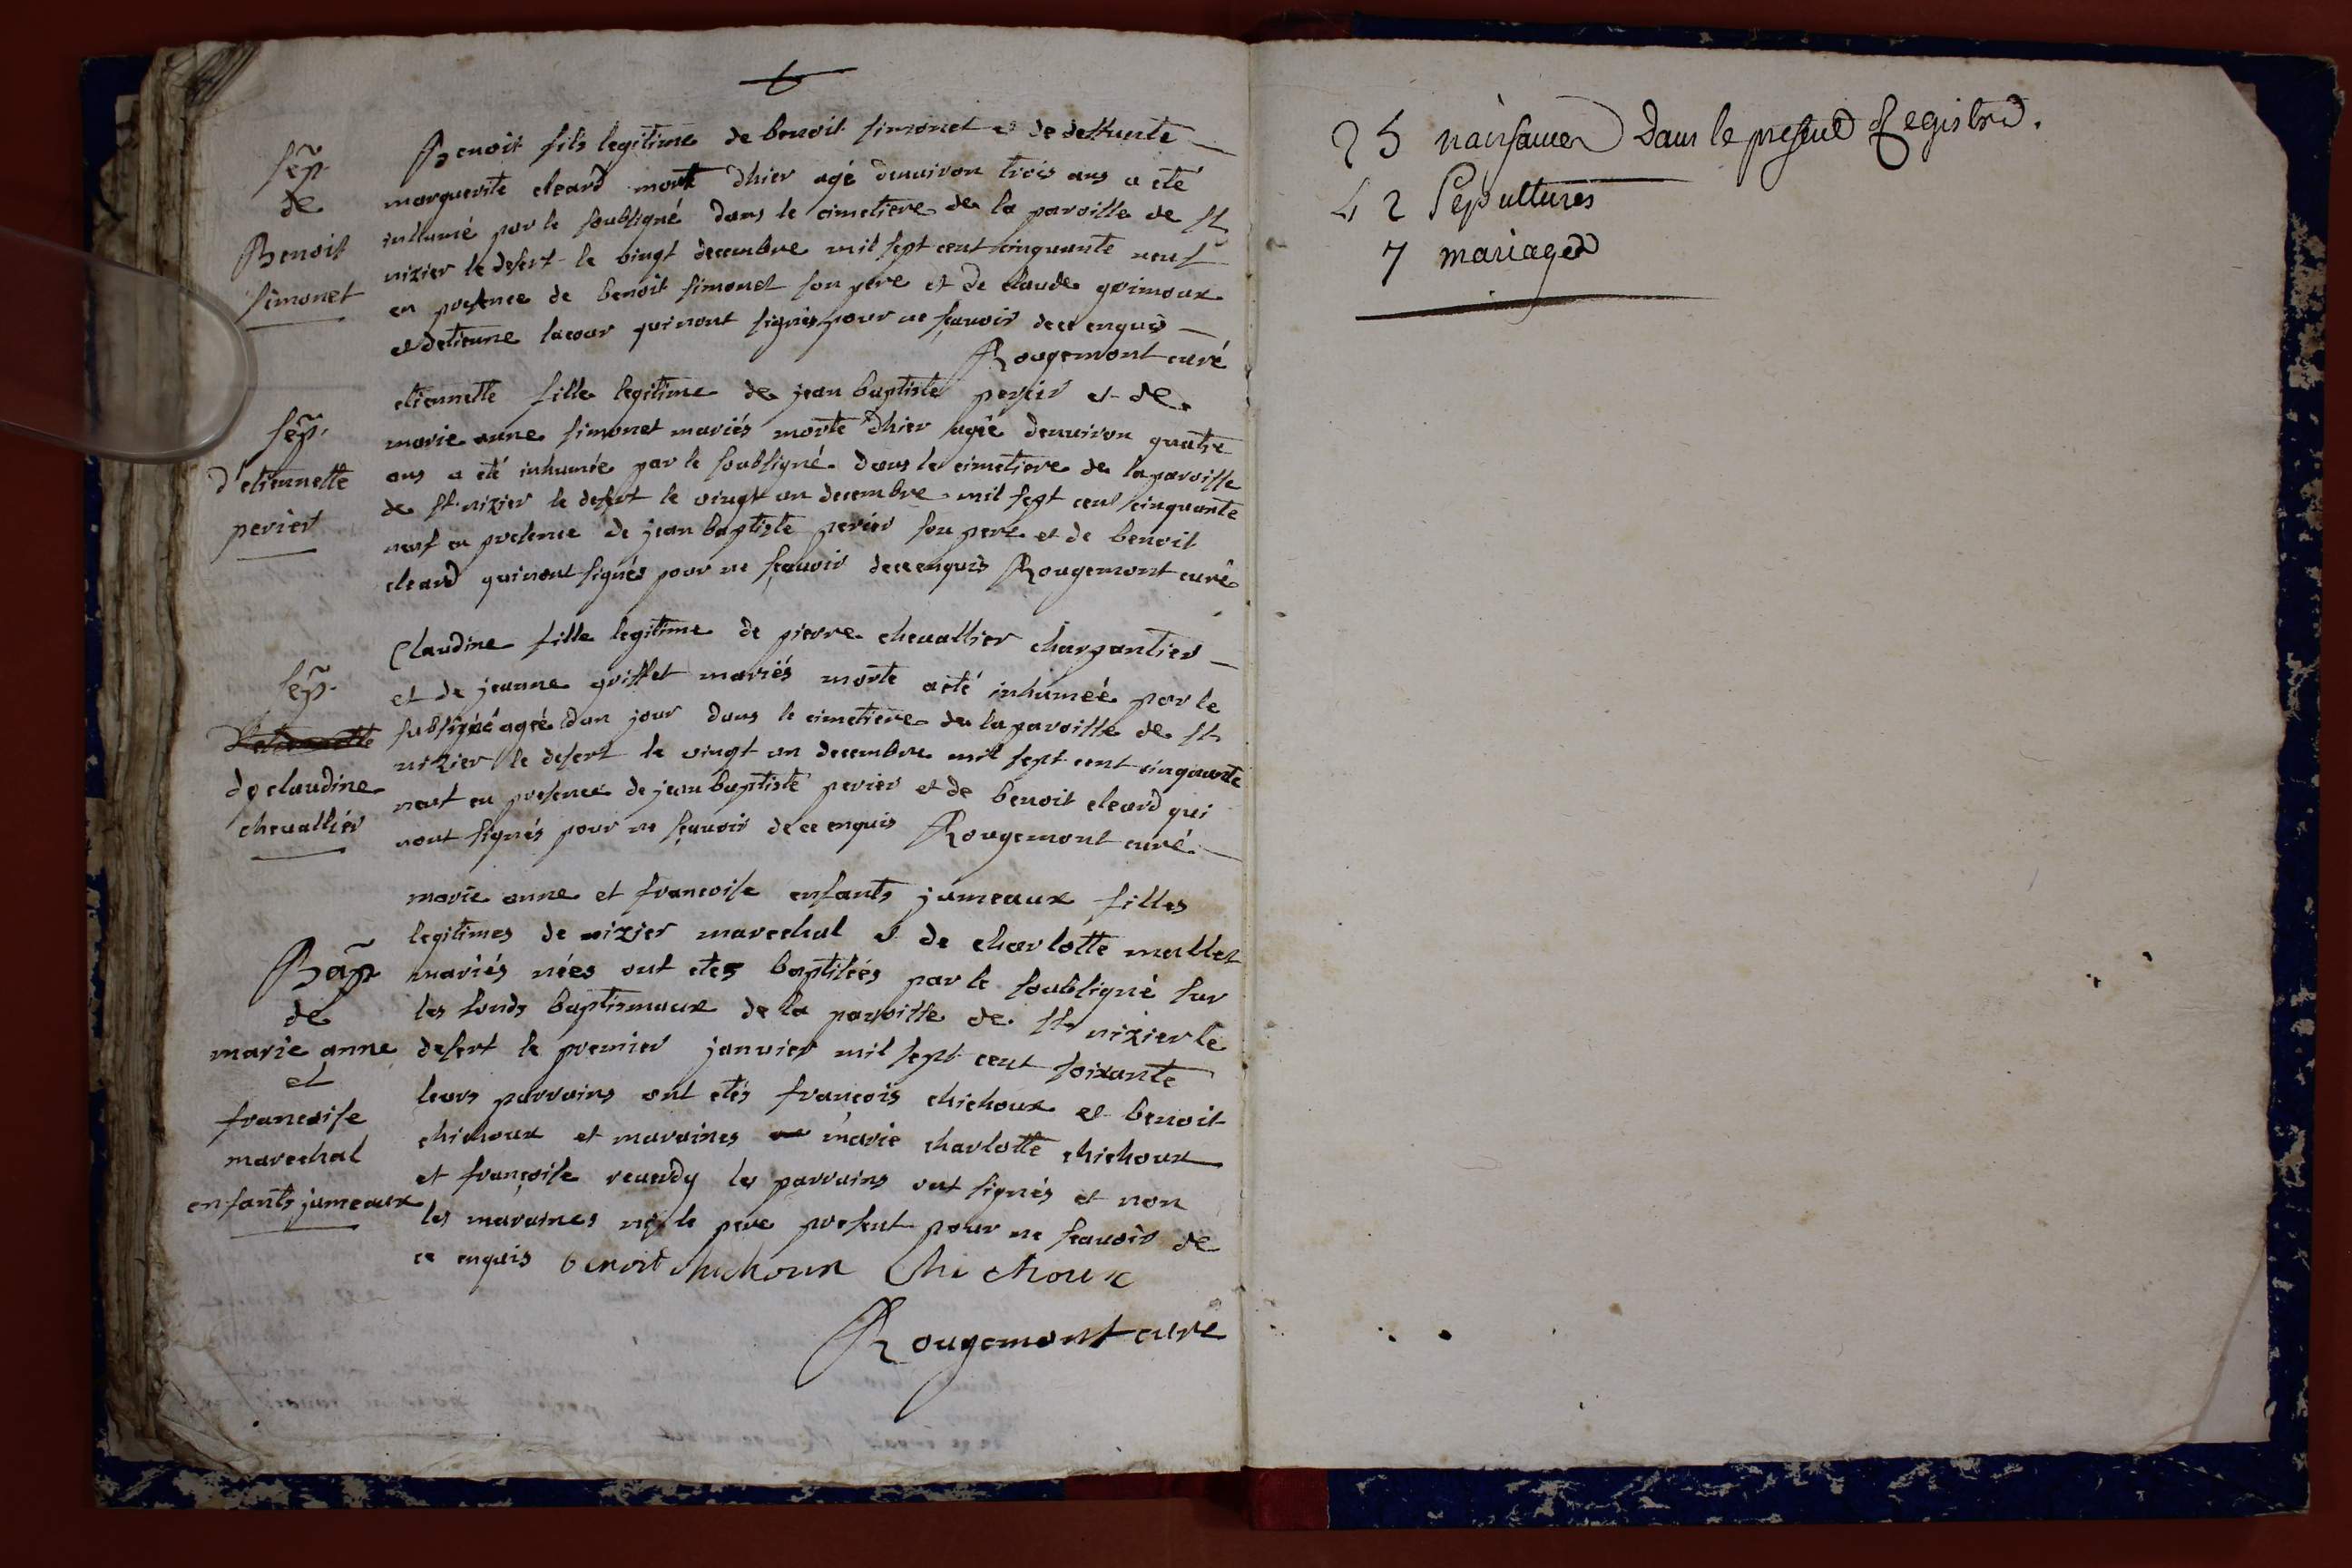 sep.
de
Benoit
simonet
Benoit fils legitime de benoit simonet et de deffunte
marguerite cleard mort dhier agé denuiron trois ans a eté
inhumé par le soubsigné dans le cimetiere de la paroisse de st
nizier le desert le vingt decembre mil sept cent cinquante neuf
en presence de benoit simonet son pere et de claude grimoux
et detienne lacour qui nont signés pour ne sçauoir de ce enquis
Rougemont curé
sep.
d'etiennette
perier
etiennette fille legitime de jean baptiste perier et de
marie anne simonet mariés morte dhier agée denuiron quatre
ans a eté inhumée par le soubsigné dans le cimetiere de la paroisse
de st nizier le desert le vingt un decembre mil sept cent cinquante
neuf en presence de jean baptiste perier son pere et de benoit
cleard qui nont signés pour ne sçauoir de ce enquis Rougemont curé
sep.
d'etiennette
de claudine
cheuallier
Claudine fille legitime de pierre cheuallier charpantier
et de jeanne griffet mariés morte a eté inhumée par le
subsigné agée dun jour dans le cimetiere de la paroisse de st
nizier le desert le vingt un decembre mil sept cent cinquante
neuf en presence de jean baptiste perier et de benoit cleard qui
nont signés pour ne sçauoir de ce enquis Rougemont curé
Bap
de
marie anne
et
francoise
marechal
enfants jumeaux
marie anne et francoise enfants jumeaux filles
legitimes de nizier marechal et de charlotte mallet
mariés nées ont etes baptisées par le soubsigné sur
les fonds baptismaux de la paroisse de st nizier le
desert le premier januier mil sept cent soixante
leurs parrains ont etés françois chichoux et benoit
chichoux et maraines marie charlotte chichoux
et françoise reuerdy les parrains ont signés et non
les maraines ny le pere present pour ne scauoir de
ce enquis benoit chichoux Chichoux
Rougemont curé
25 naissances Dans le present Registre.
42 Sepultures
7 mariages